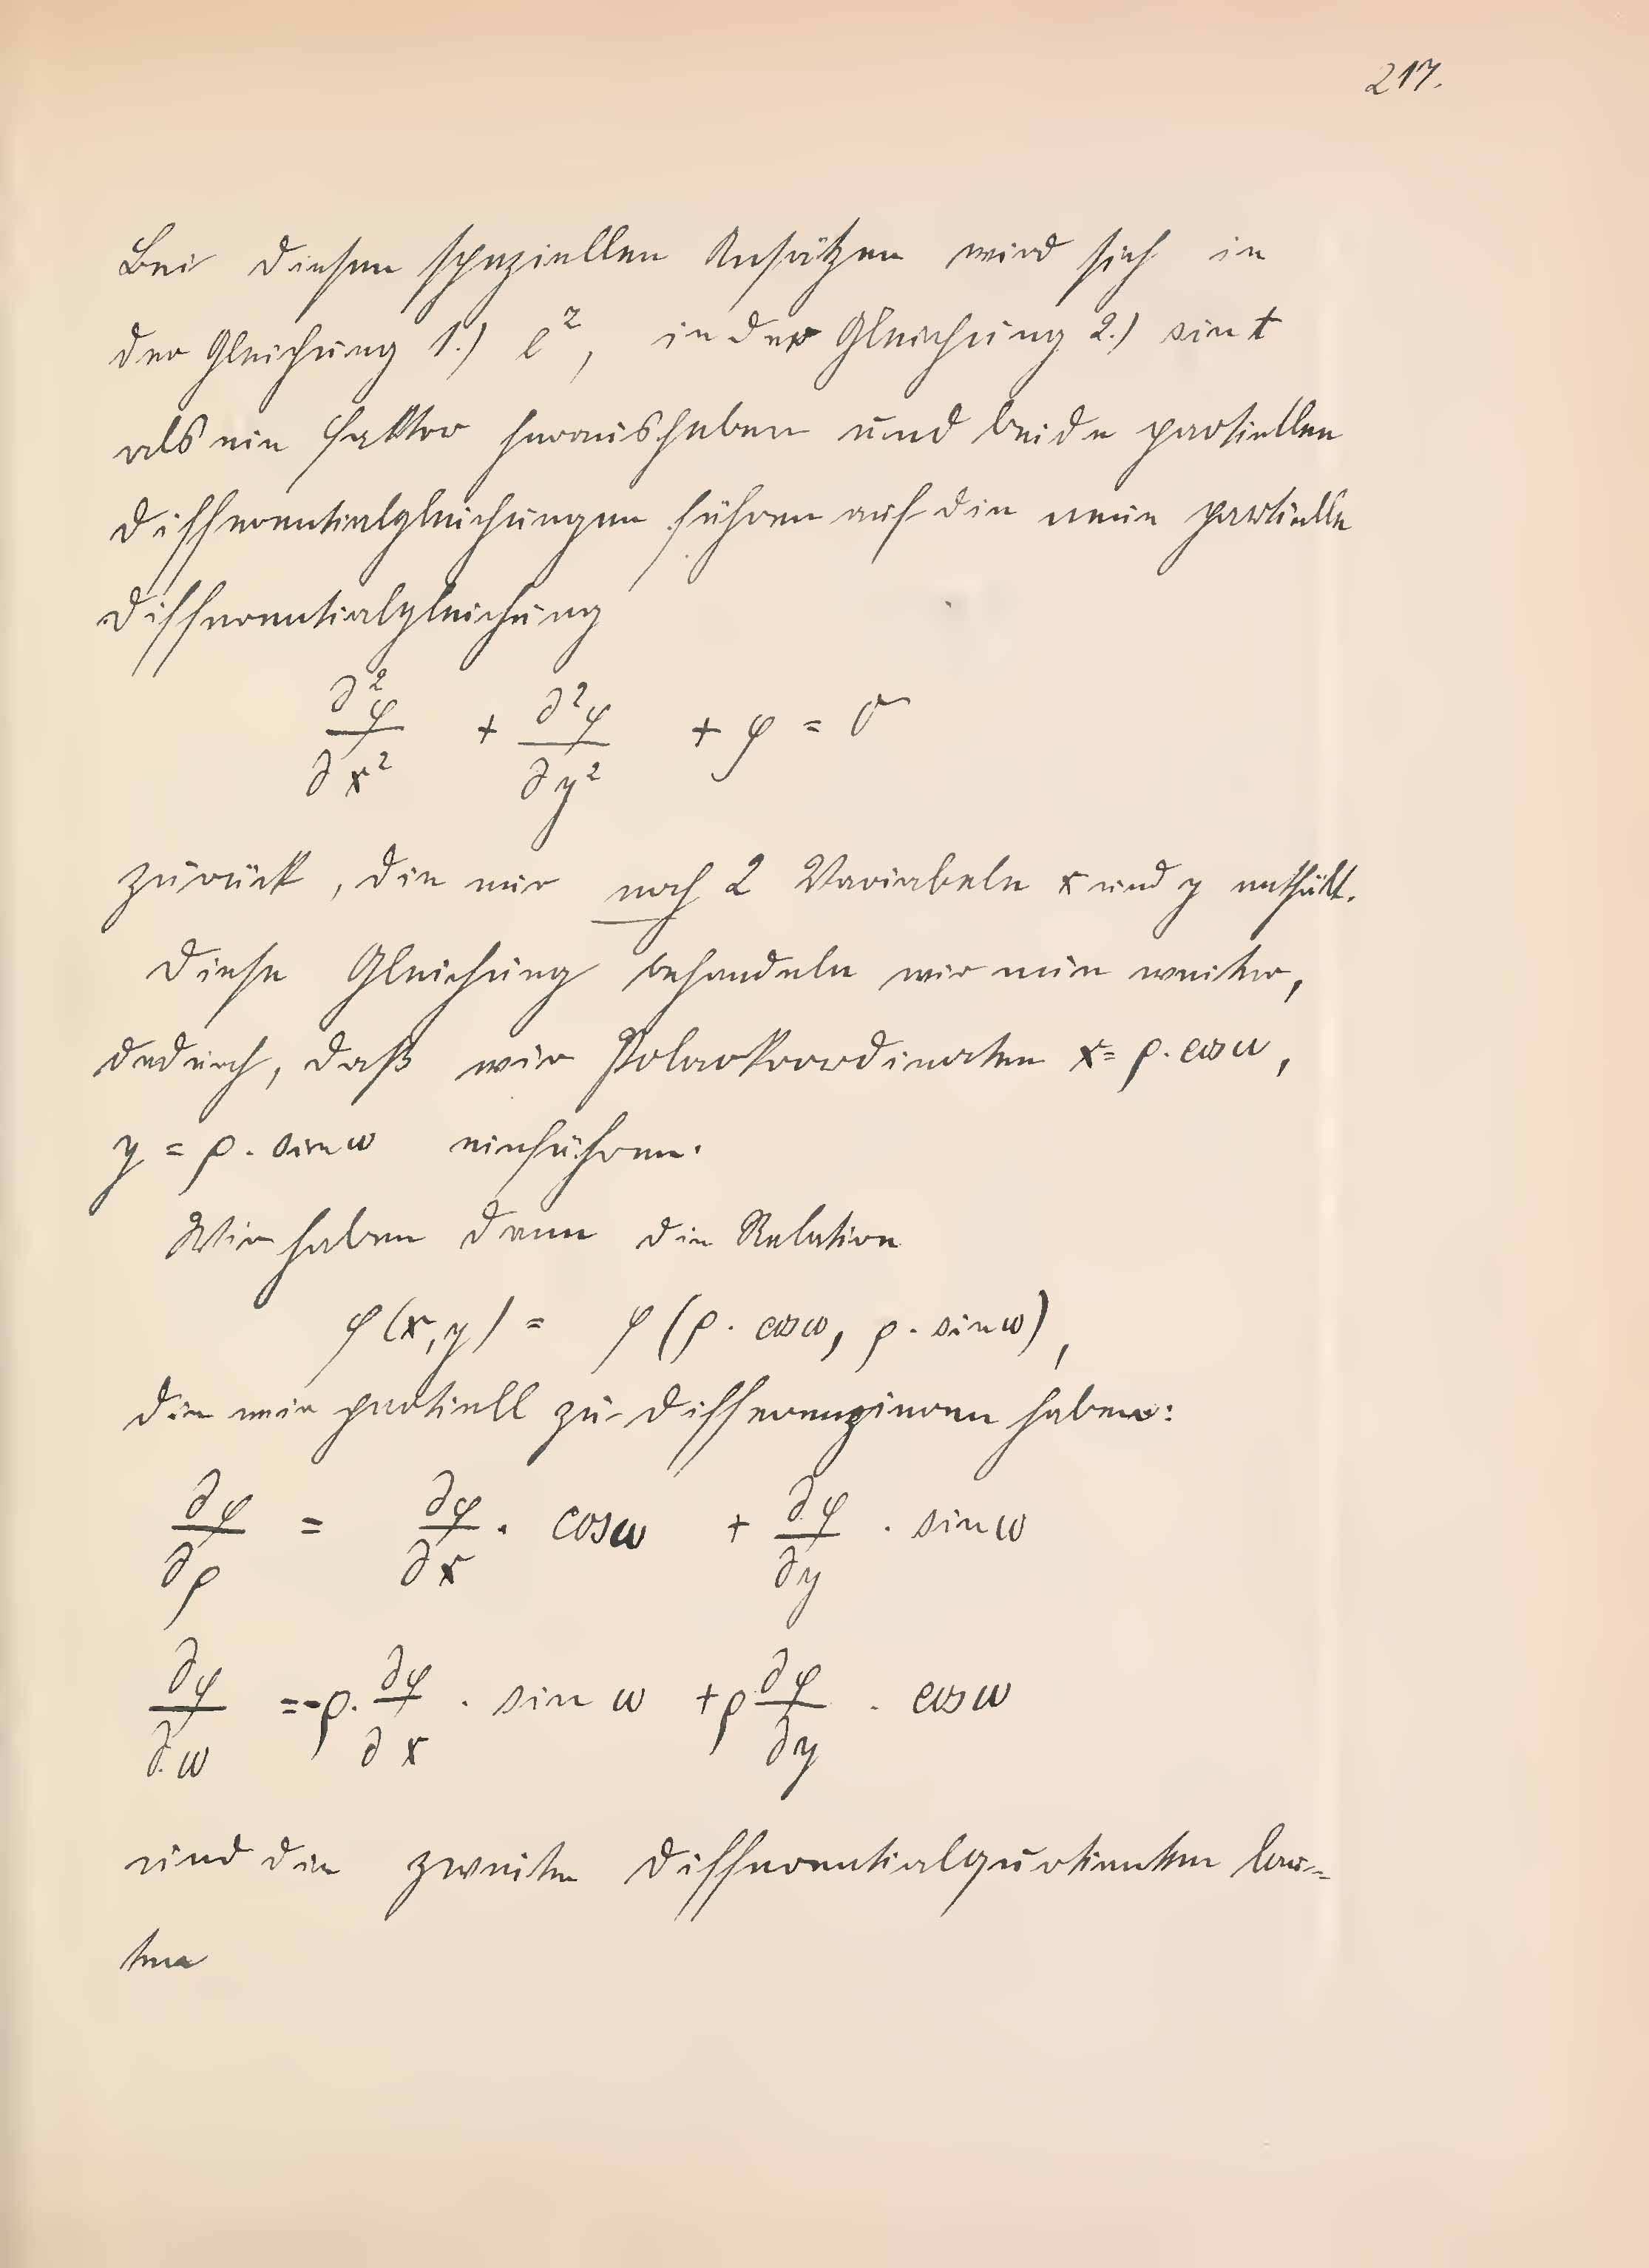 217.
Bei diesen speziellen Ansätzen wird sich in
der Gleichung 1.) e^z, in der Gleichung 2.) sin t
als ein Faktor herausheben und beide partiellen
Differentialgleichungen führen auf die neue partielle
Differentialgleichung
∂²φ/∂x² + ∂²φ/∂y² + φ = 0
zurück, die nur noch 2 Variabeln x und y enthält.
Diese Gleichung behandeln wir nun weiter,
dadurch, daß wir Polarkoordinaten x = ρ. cos ω,
y = ρ. sin ω einführen.
Wir haben dann die Relation
φ(x,y) = φ(ρ. cos ω, ρ. sin ω),
die wir partiell zu differenzieren haben:
∂φ/∂ρ = ∂φ/∂x . cos ω + ∂φ/∂y . sin ω
∂φ/∂ω = -ρ. ∂φ/∂x . sin ω + ρ ∂φ/∂y . cos ω
und die zweiten Differentialquotienten lau=
ten